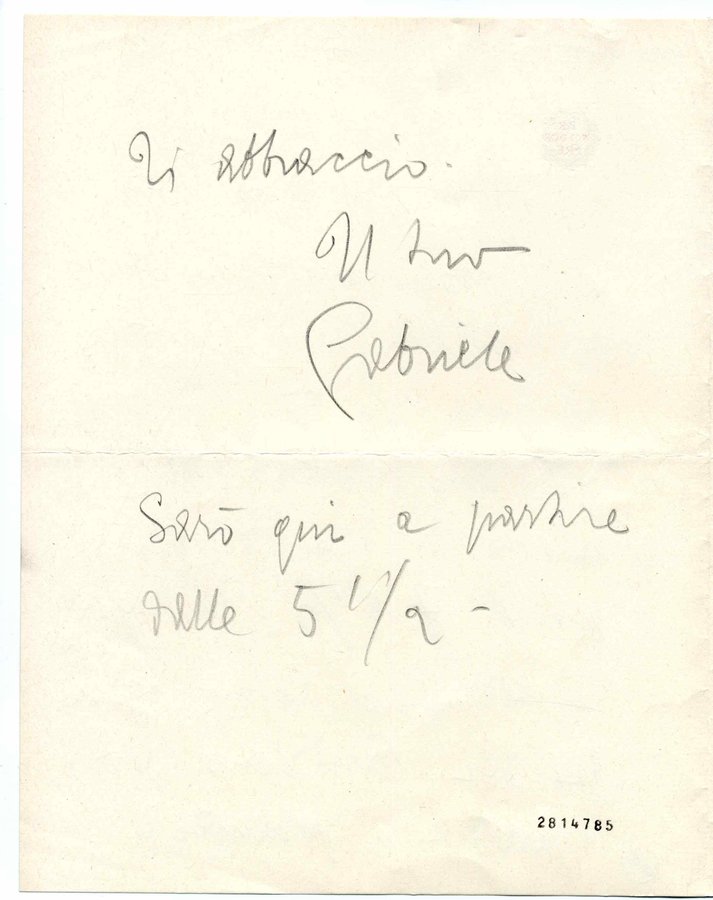 Ti abbraccio.
Il tuo
Gabriele
Sarò qui a partire
dalle 5 1/2 -
2814785